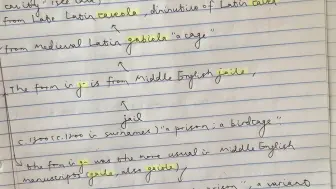 from Late Latin caveola, diminutive of Latin cavea
from medieval Latin gabiola "a cage"
The form in j- is from Middle English jaile,
jail
c. 1300 (c. 1200 in surnames) "a prison; a birdcage"
the form in g- was the more usual in Middle English
manuscripts (gaile, also gaiole),
prison", a variant